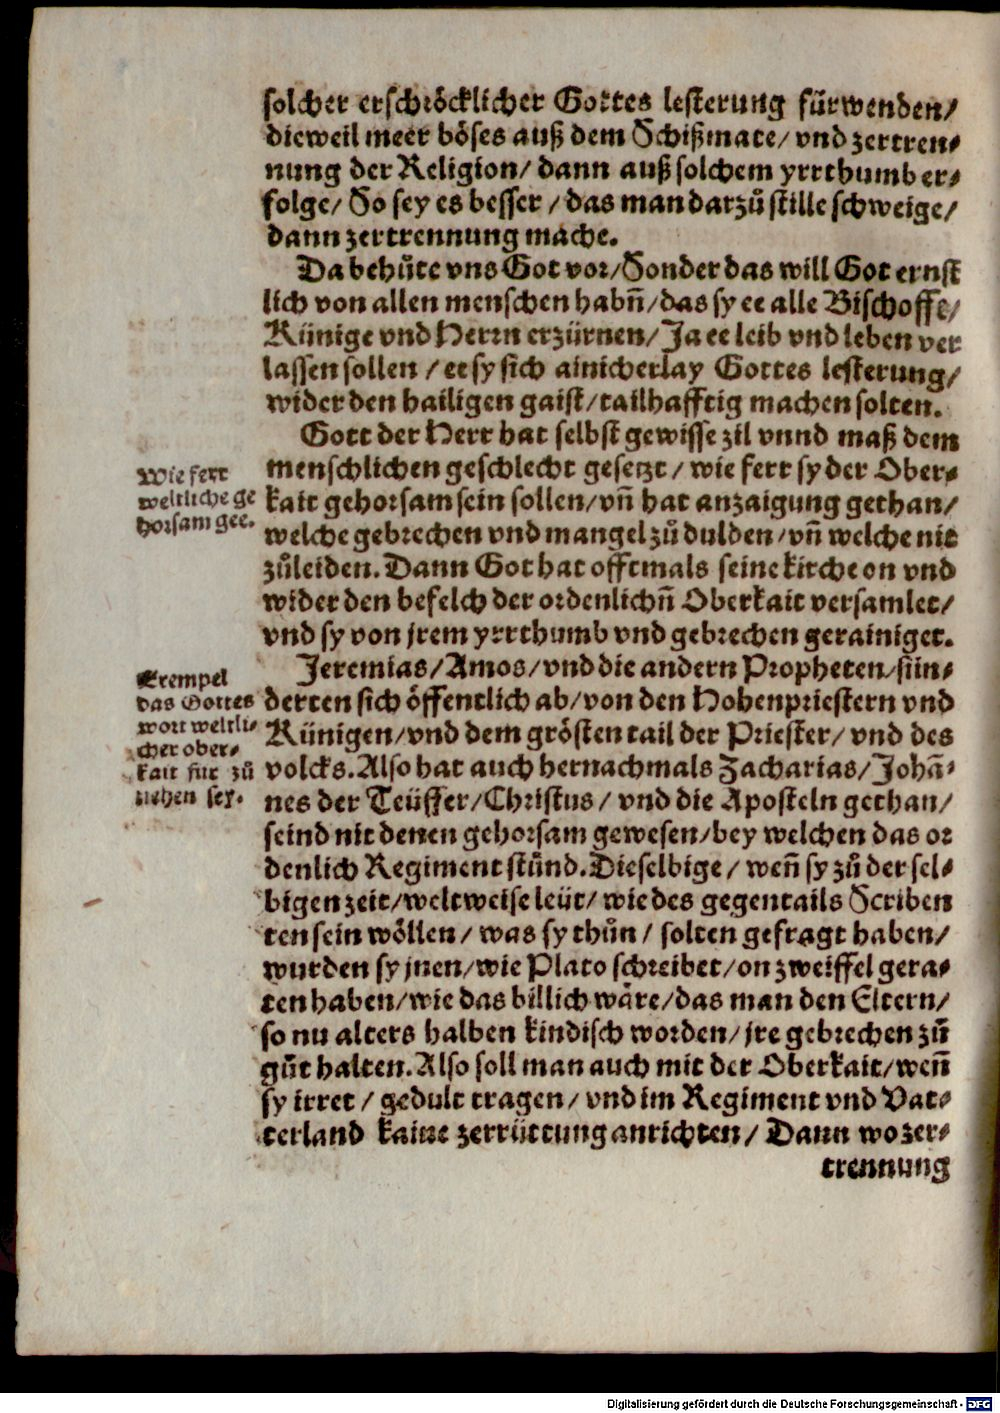 solcher erschröcklicher Gottes lesterung fürwenden/
dieweil meer böses auß dem Schißmate/ vnd zertren⸗
nung der Religion/ dann auß solchem yrrthumb er⸗
folge/ So sey es besser / das man darzů stille schweige/
dann zertrennung mache.
Da behůte vns Got vor/ Sonder das will Got ernst
lich von allen menschen habñ/ das sy ee alle Bischoffe/
Künige vnd Herrn erzürnen/ Ja ee leib vnd leben ver
lassen sollen / ee sy sich ainicherlay Gottes lesterung/
wider den hailigen gaist/ tailhafftig machen solten.
Gott der Herr hat selbst gewisse zil vnnd maß dem
menschlichen geschlecht gesetzt / wie ferr sy der Ober⸗
kait gehorsam sein sollen/ vñ hat anzaigung gethan/
welche gebrechen vnd mangel zů dulden/ vñ welche nit
zůleiden. Dann Got hat offtmals seine kirche on vnd
wider den befelch der ordenlichñ Oberkait versamlet/
vnd sy von jrem yrrthumb vnd gebrechen gerainiget.
Wie ferr
weltliche ge
horsam gee.
Jeremias/ Amos/ vnd die andern Propheten/ sün⸗
derten sich öffentlich ab/ von den Hohenpriestern vnd
Künigen/ vnd dem grösten tail der Priester/ vnd des
volcks. Also hat auch hernachmals Zacharias/ Johã⸗
nes der Teüffer/ Christus / vnd die Aposteln gethan/
seind nit denen gehorsam gewesen/ bey welchen das or
denlich Regiment stůnd. Dieselbige / weñ sy zů der sel⸗
bigen zeit/ weltweise leüt/ wie des gegentails Scriben
ten sein wöllen / was sy thůn / solten gefragt haben/
wurden sy jnen/ wie Plato schreibet/ on zweiffel gera⸗
ten haben/ wie das billich wäre/ das man den Eltern/
so nu alters halben kindisch worden/ jre gebrechen zů
gůt halten. Also soll man auch mit der Oberkait/ weñ
sy irret / gedult tragen/ vnd im Regiment vnd Vat⸗
terland kaine zerrüttung anrichten/ Dann wo zer⸗
trennung
Exempel
das Gottes
wort weltli⸗
cher ober⸗
kait für zů
ziehen sey.
Digitalisierung gefördert durch die Deutsche Forschungsgemeinschaft - DFG